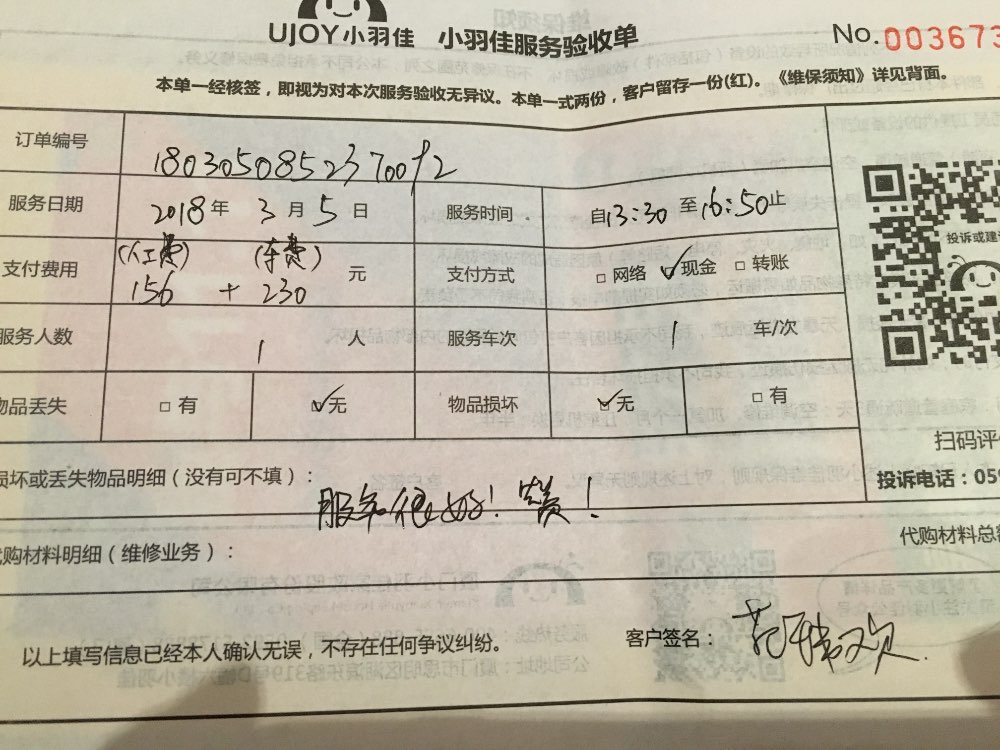 UJOY小羽佳 小羽佳服务验收单 No.003673
本单一经核签，即视为对本次服务验收无异议。本单一式两份，客户留存一份(红)。《维保须知》详见背面。
订单编号 18030508523700912
服务日期 2018年3月5日 服务时间 自13:30至16:50止
支付费用 (人工费) 156 + (车费) 230 元 支付方式 □网络 ☑现金 □转账
服务人数 1 人 服务车次 车/次
物品丢失 □有 ☑无 物品损坏 ☑无 □有
投诉或建议
扫码评价
损坏或丢失物品明细（没有可不填）： 服务很好！赞！
投诉电话：059
代购材料明细（维修业务）： 代购材料总额
以上填写信息已经本人确认无误，不存在任何争议纠纷。 客户签名：